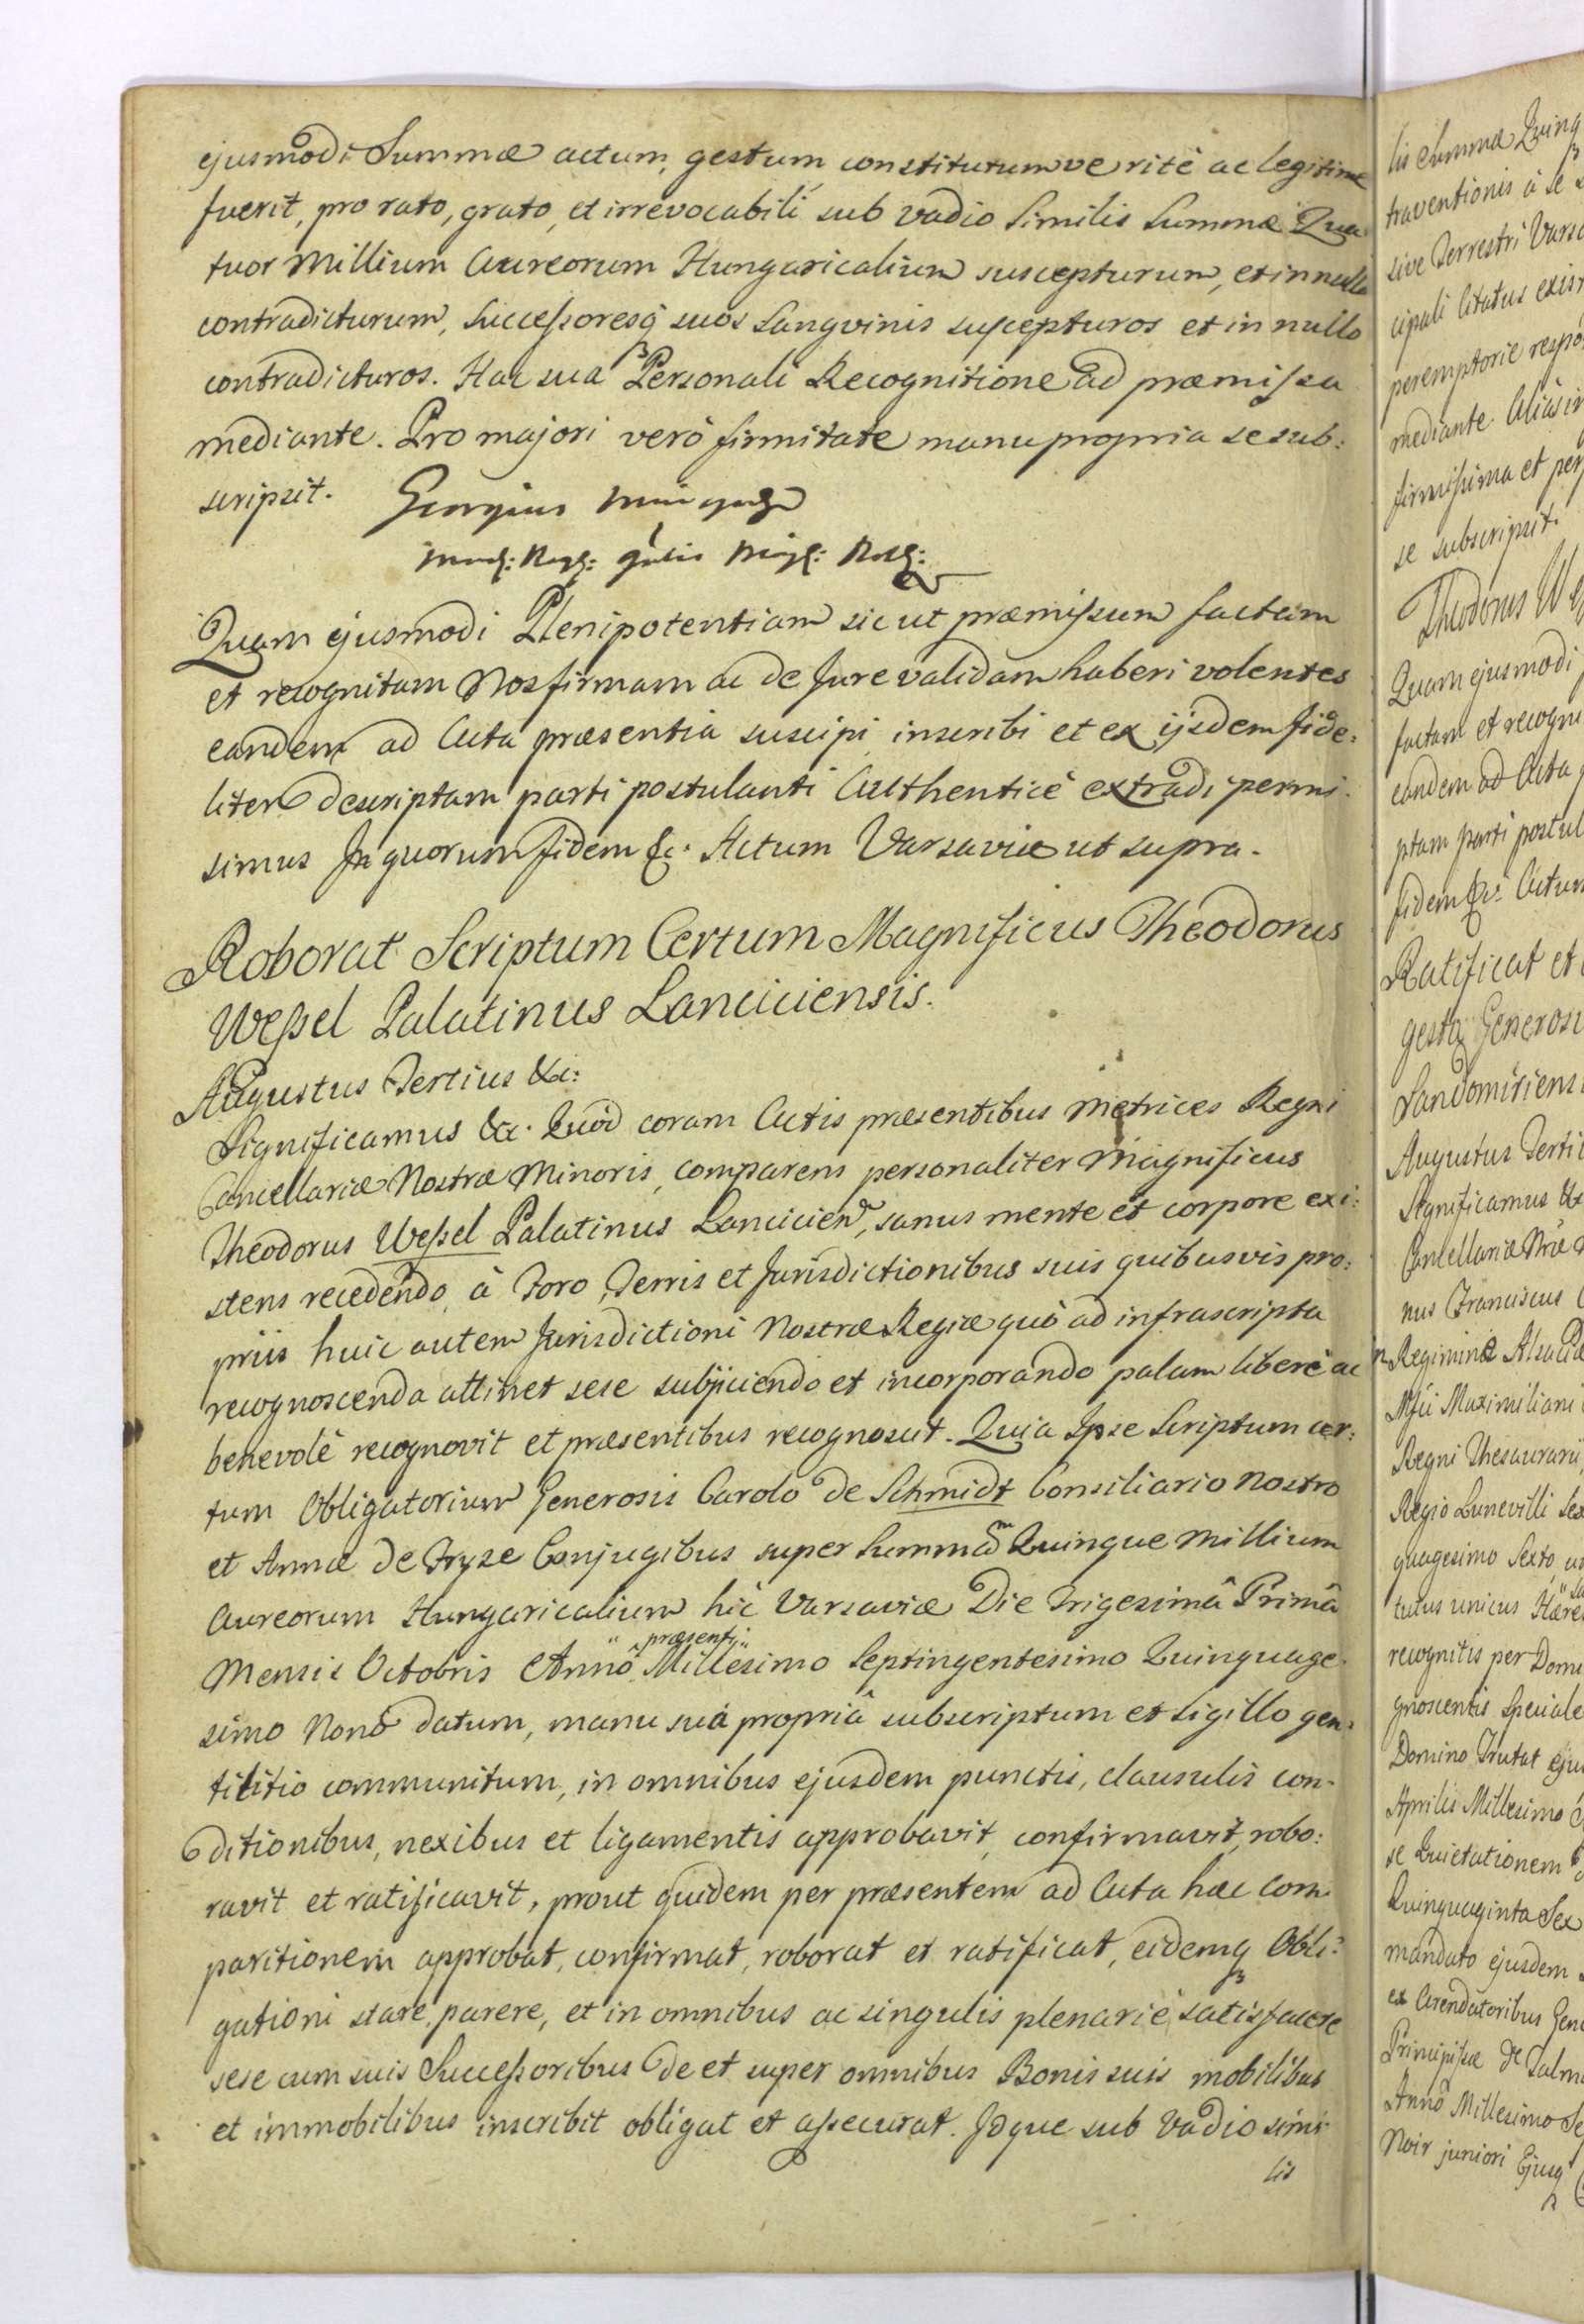 ejusmodi Summæ actum, gestum constitutumve ritè ac legitime
fuerit, pro rato, grato, et irrevocabili sub vadio similis summæ Qua
tuor Millium Aureorum Hungaricalium suscepturum, et in nullo
contradicturum, Successoresq suos Sangvinis suscepturos et in nullo
contradicturos. Hac sua Personali Recognitione ad præmissa
mediante. Pro majori verò firmitate manu propria se sub:
scripsit. Georgius
Quam ejusmodi Plenipotentiam sic ut præmissum factam
et recognitam Nos firmam ac de Jure validam haberi volentes
eandem ad Acta præsentia suscipi inscribi et ex ijsdem fide:
liter descriptam parti postulanti Authenticè extradi permi.
simus In quorum fidem &c. Actum Varsaviæ ut supra.
Roborat Scriptum Certum Magnificus Theodorus
Wessel Palatinus Lanciciensis.
Augustus Tertius &c:
Significamus &c. Quòd coram Actis præsentibus Metrices Regni
Cancellariæ Nostræ Minoris, comparens personaliter Magnificus
Theodorus Wessel Palatinus Lancicien, sanus mente et corpore exi:
stens recedendo à Foro, Terris et Jurisdictionibus suis quibusvis pro:
priis huic autem Jurisdictioni Nostræ Regiæ quò ad infrascripta
recognoscenda attinet sese subjiciendo et incorporando palam liberè ac
benevolè recognovit et præsentibus recognoscit. Quia Ipse Scriptum cer:
tum Obligatorium Generosis Carolo de Schmidt Consiliario Nostro
et Annæ de Fryze Conjugibus super Summam Quinque Millium
Aureorum Hungaricalium hîc Varsaviæ Die Trigesimâ Primâ
præsenti
Mensis Octobris Annô Millesimo Septingentesimo Quinquage.
simo Nonô datum, manu suâ propriâ subscriptum et sigillo gen:
tilitio communitum, in omnibus ejusdem punctis, clausulis con.
ditionibus, nexibus et ligamentis approbavit, confirmavit, robo:
ravit et ratificavit, prout quidem per præsentem ad Acta hæc com
paritionem approbat, confirmat, roborat et ratificat, eidemq Obli:
gationi stare parere, et in omnibus ac singulis plenariè satisfacere
sese cum suis Successoribus de et super omnibus Bonis suis mobilibus
et immobilibus inscribit obligat et assecurat. Idque sub Vadio simi
lis
lis summæ Quinq
traventionis à se
sive Terrestri Varsa
cipali citatus exist
peremptorie respo
mediante. Aliàs in
firmissima et per
se subscripsit.
Theodorus We
Quam ejusmodi
factam et recogni
eandem ad Acta
ptam parti postul
fidem &c: Actum
Ratificat et
gesta Generosi
Sandomiriensi
Augustus Terti
Significamus &c
Cancellariæ Nræ
nus Franciscus
Regimine Alsatiæ
Maximiliani
Regni Thesaurarii
Regio Lunevilli Sex
quagesimo Sexto, un
tutus unicus Hære
recognitis per Domi
gnoscentis Speciale
Domino Trutat eju
Aprilis Millesimo
se Quietationem
Quinquaginta Sex
mandato ejusdem
ex Arendatoribus Gen
Principissæ de Talm
Annô Millesimo Se
Noir juniori Ejusq